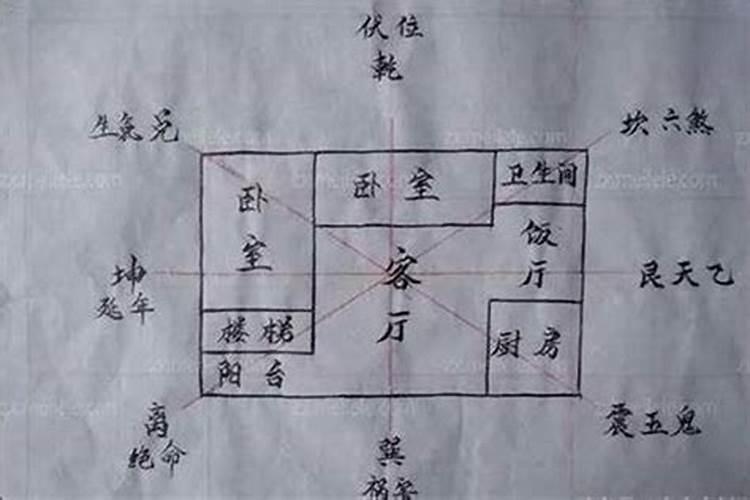 伏位
乾
生气兑
坎六煞
卧室
卧室
卫生间
饭厅
客厅
坤
延年
艮天乙
楼梯
阳台
厨房
离
绝命
震五鬼
巽
祸害